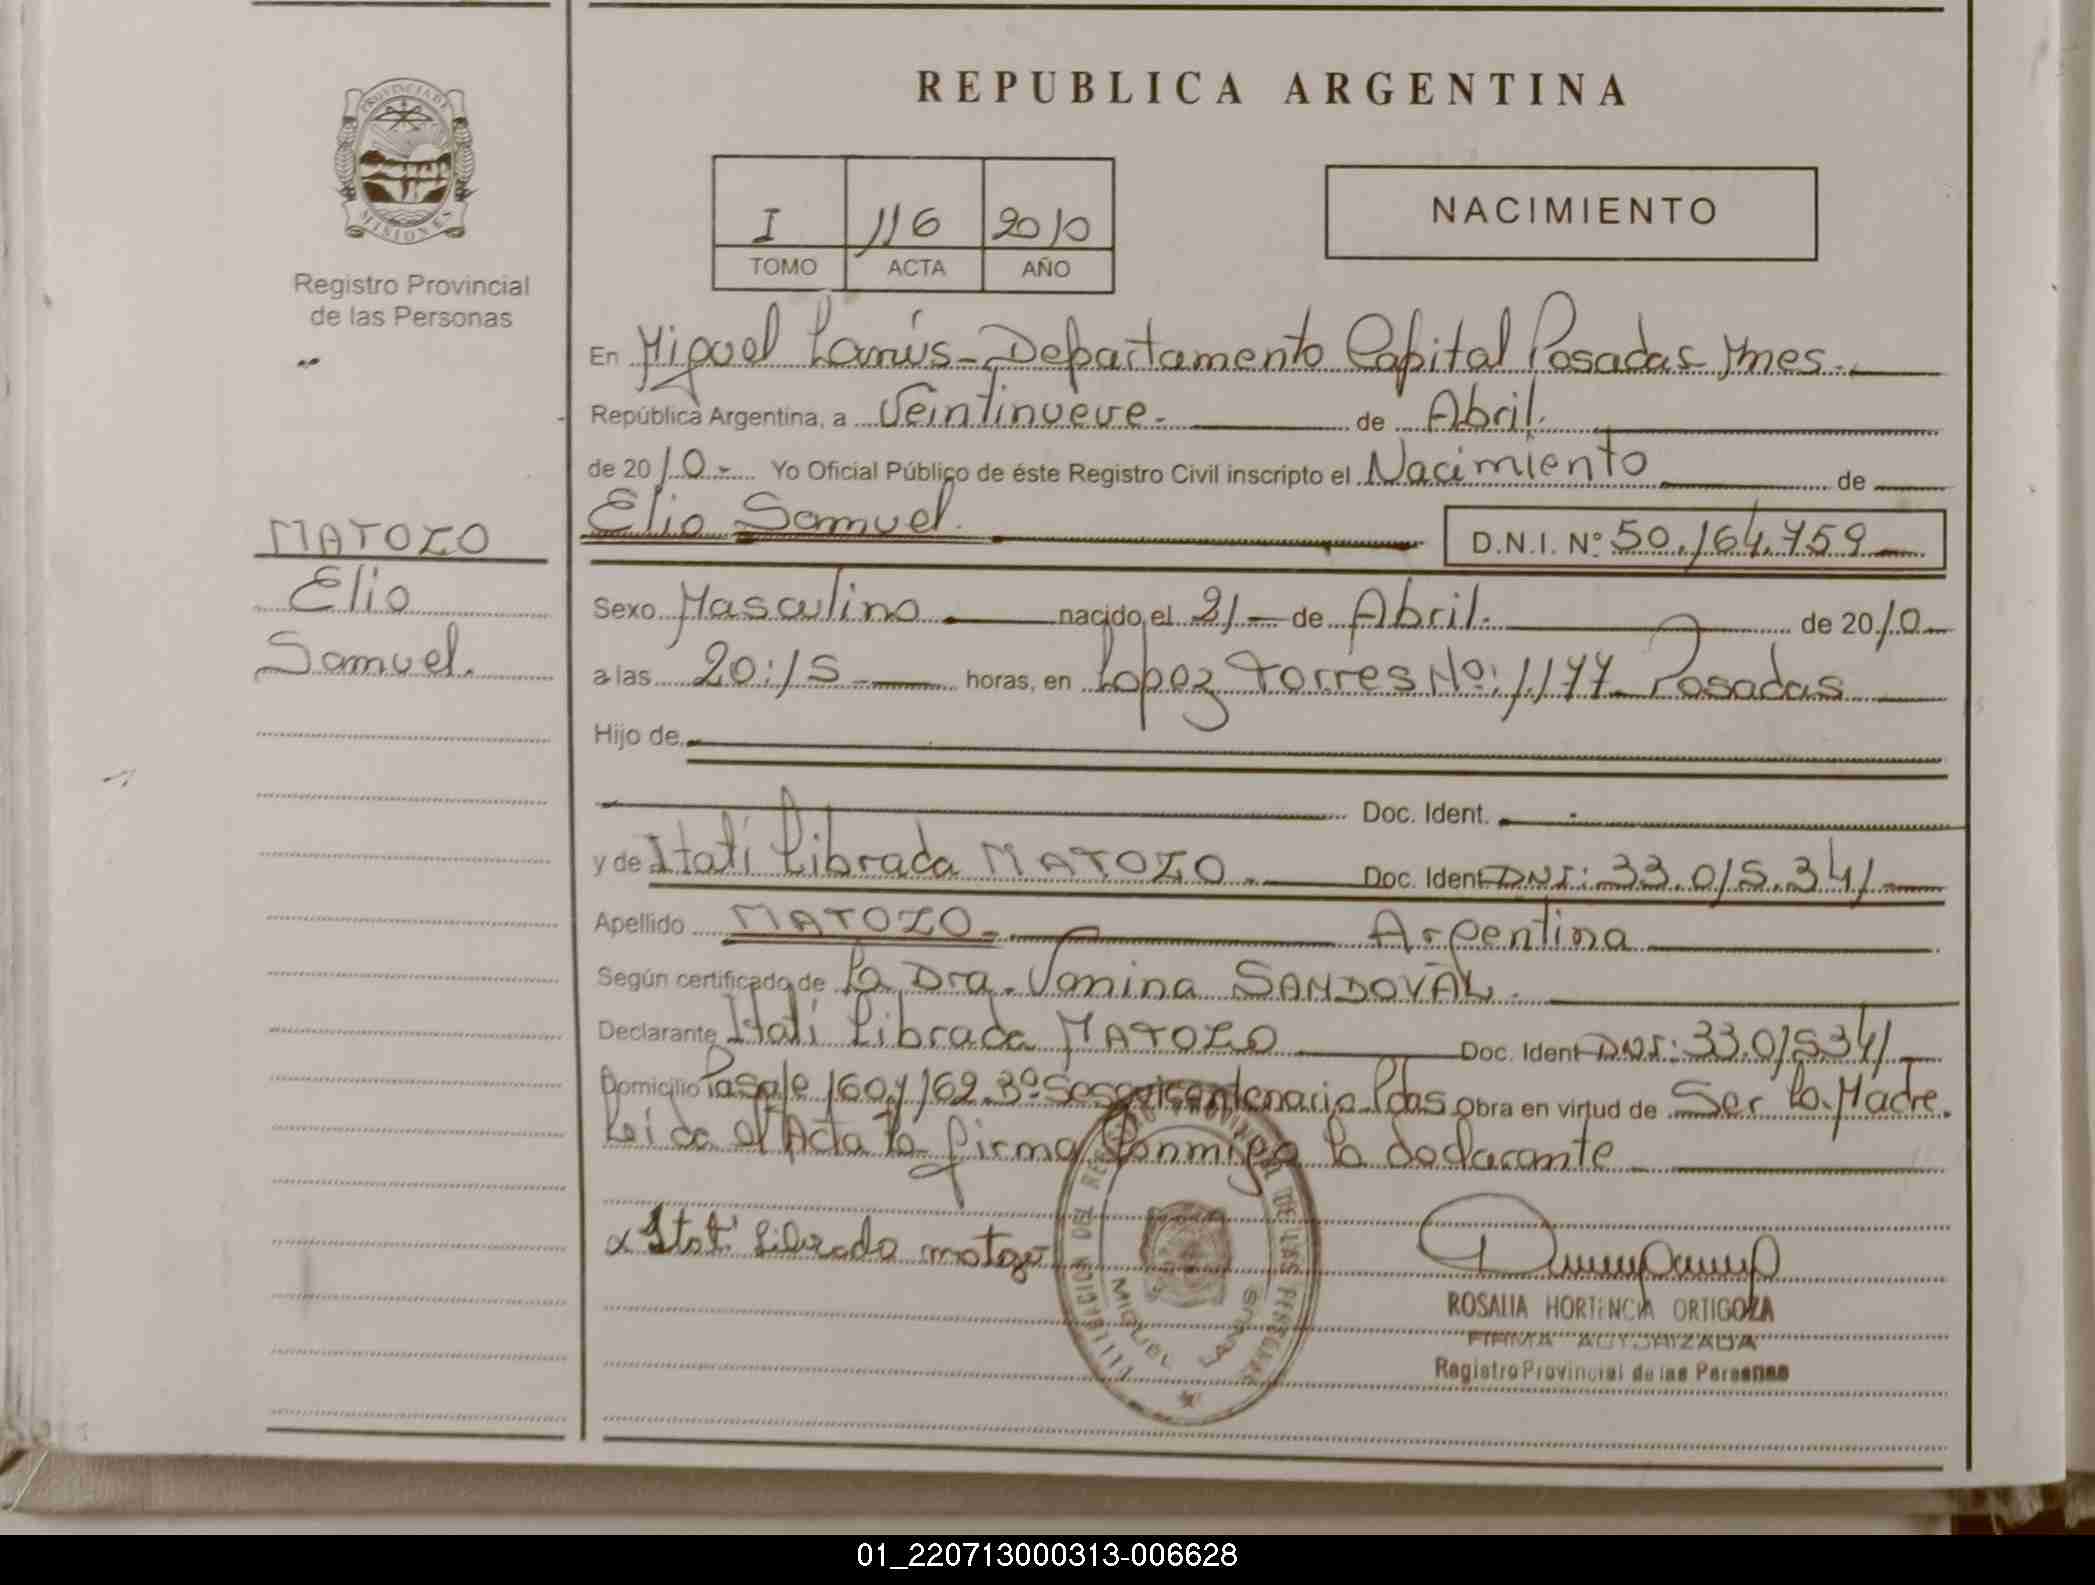 REPUBLICA ARGENTINA
PROVINCIA DE
MISIONES
Registro Provincial
de las Personas
I 116 2010
TOMO ACTA AÑO
NACIMIENTO
En Miguel Lanús - Departamento Capital Posadas Mnes.
República Argentina, a Veintinueve. de Abril.
de 2010 - Yo Oficial Público de éste Registro Civil inscripto el Nacimiento de
Elio Samuel. D.N.I. Nº 50.164.759
MATOZO
Elio
Samuel.
Sexo Masculino nacido el 21 - de Abril. de 2010
a las 20:15 horas, en Lopez Torres Nº: 1177 Posadas
Hijo de
Doc. Ident.
y de Itatí Librada MATOZO. Doc. Ident DNI: 33.015.341
Apellido MATOZO. Argentina
Según certificado de La Dra. Vanina SANDOVAL.
Declarante Itatí Librada MATOZO Doc. Ident DNI: 33.015341
Domicilio Pasaje 160 y 162. Bº Sesquicentenario Pdas Obra en virtud de Ser la Madre.
Leida el Acta la firma Conmigo la declarante
x Itatí Librada matozo
DELEGACION DEL REGISTRO PROVINCIAL DE LAS PERSONAS
MIGUEL LANUS
ROSALIA HORTENCIA ORTIGOZA
FIRMA AUTORIZADA
Registro Provincial de las Personas
01_220713000313-006628